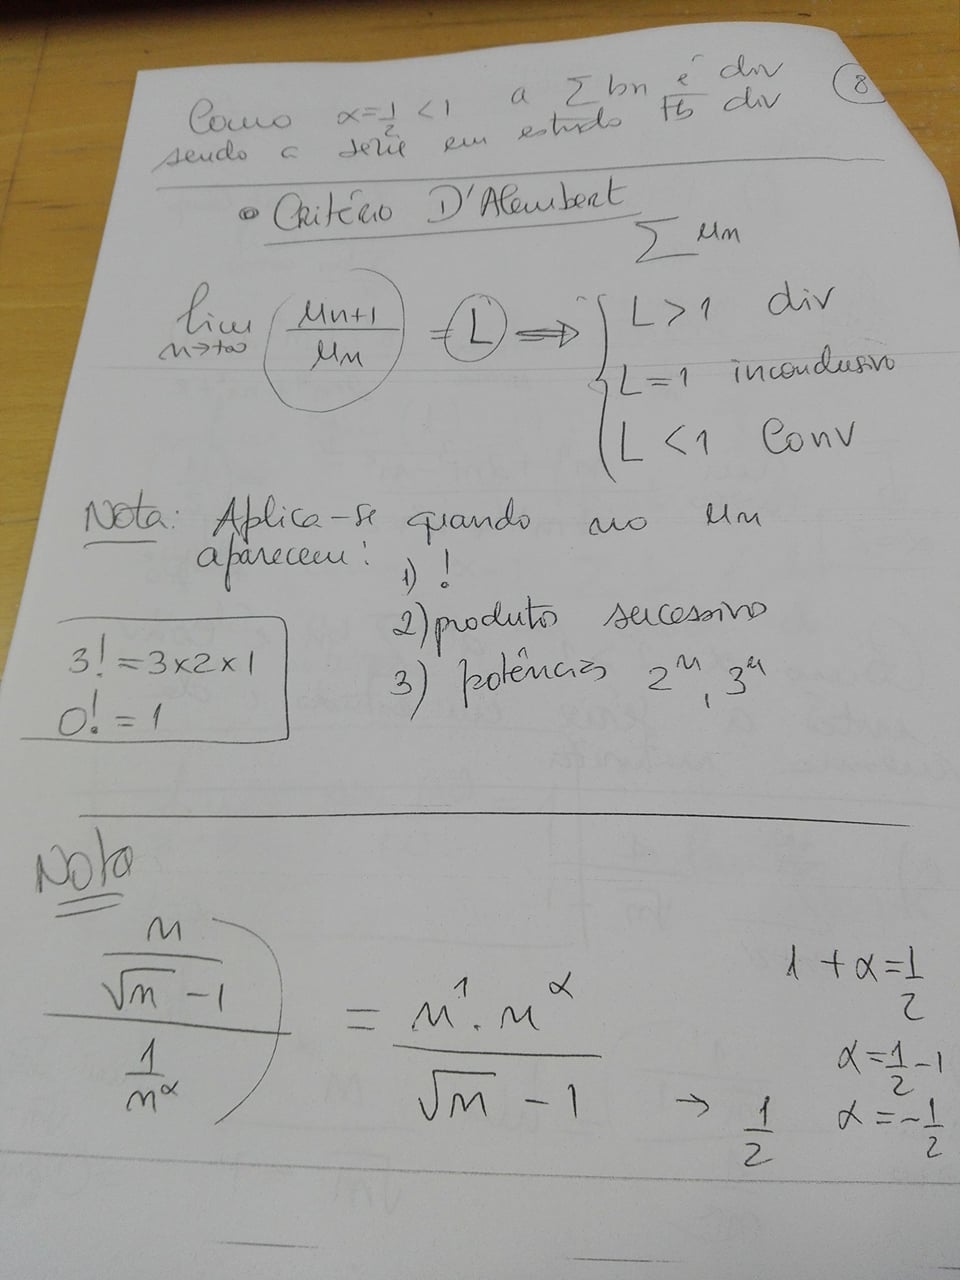 8
Como α=1/2 <1 a Σbn é div
sendo a serie em estudo tb div
• Critério D'Alembert
Σ un
lim n→+∞ (un+1/un) = L ⟹ { L>1 div
L=1 inconclusivo
L<1 Conv
Nota: Aplica-se quando no un
aparecem:
1) !
2) produto sucessivo
3) potências 2^n, 3^n
3! = 3x2x1
0! = 1
Nota
(n/(√n -1))/(1/n^α) = (n^1 . n^α)/(√n - 1) → 1/2
1 + α = 1/2
α = 1/2 - 1
α = -1/2